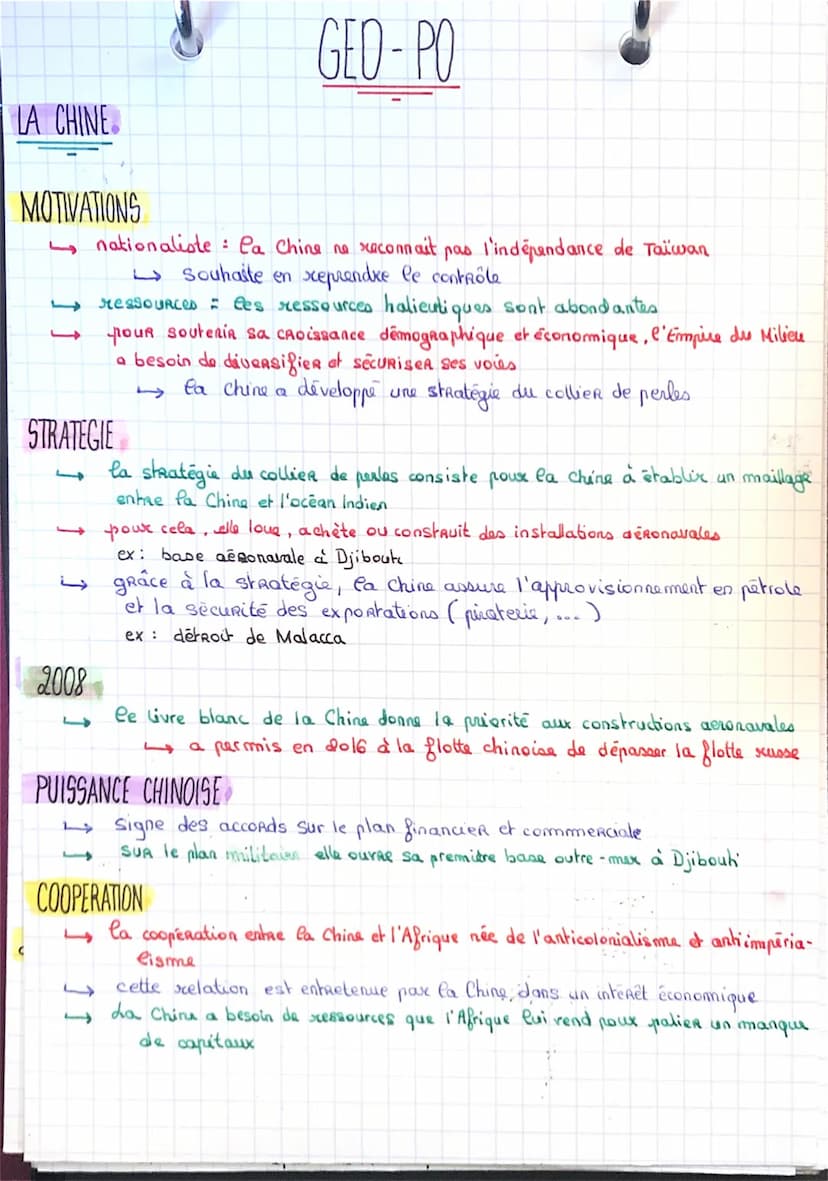 GEO-PO
LA CHINE.
MOTIVATIONS
↳ nationaliste : la Chine ne reconnait pas l'indépendance de Taïwan
↳ souhaite en reprendre le contrôle
↳ ressources = les ressources halieutiques sont abondantes
↳ pour soutenir sa croissance démographique et économique, l'Empire du Milieu
a besoin de diversifier et sécuriser ses voies
↳ la Chine a développé une stratégie du collier de perles
STRATEGIE
↳ la stratégie du collier de perles consiste pour la Chine à établir un maillage
entre la Chine et l'océan Indien
↳ pour cela, elle loue, achète ou construit des installations aéronavales
ex : base aéronavale à Djibouti
↳ grâce à la stratégie, la Chine assure l'approvisionnement en pétrole
et la sécurité des exportations (piraterie, ...)
ex : détroit de Malacca
2008
↳ le livre blanc de la Chine donne la priorité aux constructions aeronavales
↳ a permis en 2016 à la flotte chinoise de dépasser la flotte russe
PUISSANCE CHINOISE
↳ signe des accords sur le plan financier et commerciale
↳ sur le plan militaire elle ouvre sa première base outre-mer à Djibouti
COOPERATION
↳ la coopération entre la Chine et l'Afrique née de l'anticolonialisme et antiimpéria-
lisme
↳ cette relation est entretenue par la Chine, dans un intérêt économique
↳ La Chine a besoin de ressources que l'Afrique lui vend pour palier un manque
de capitaux